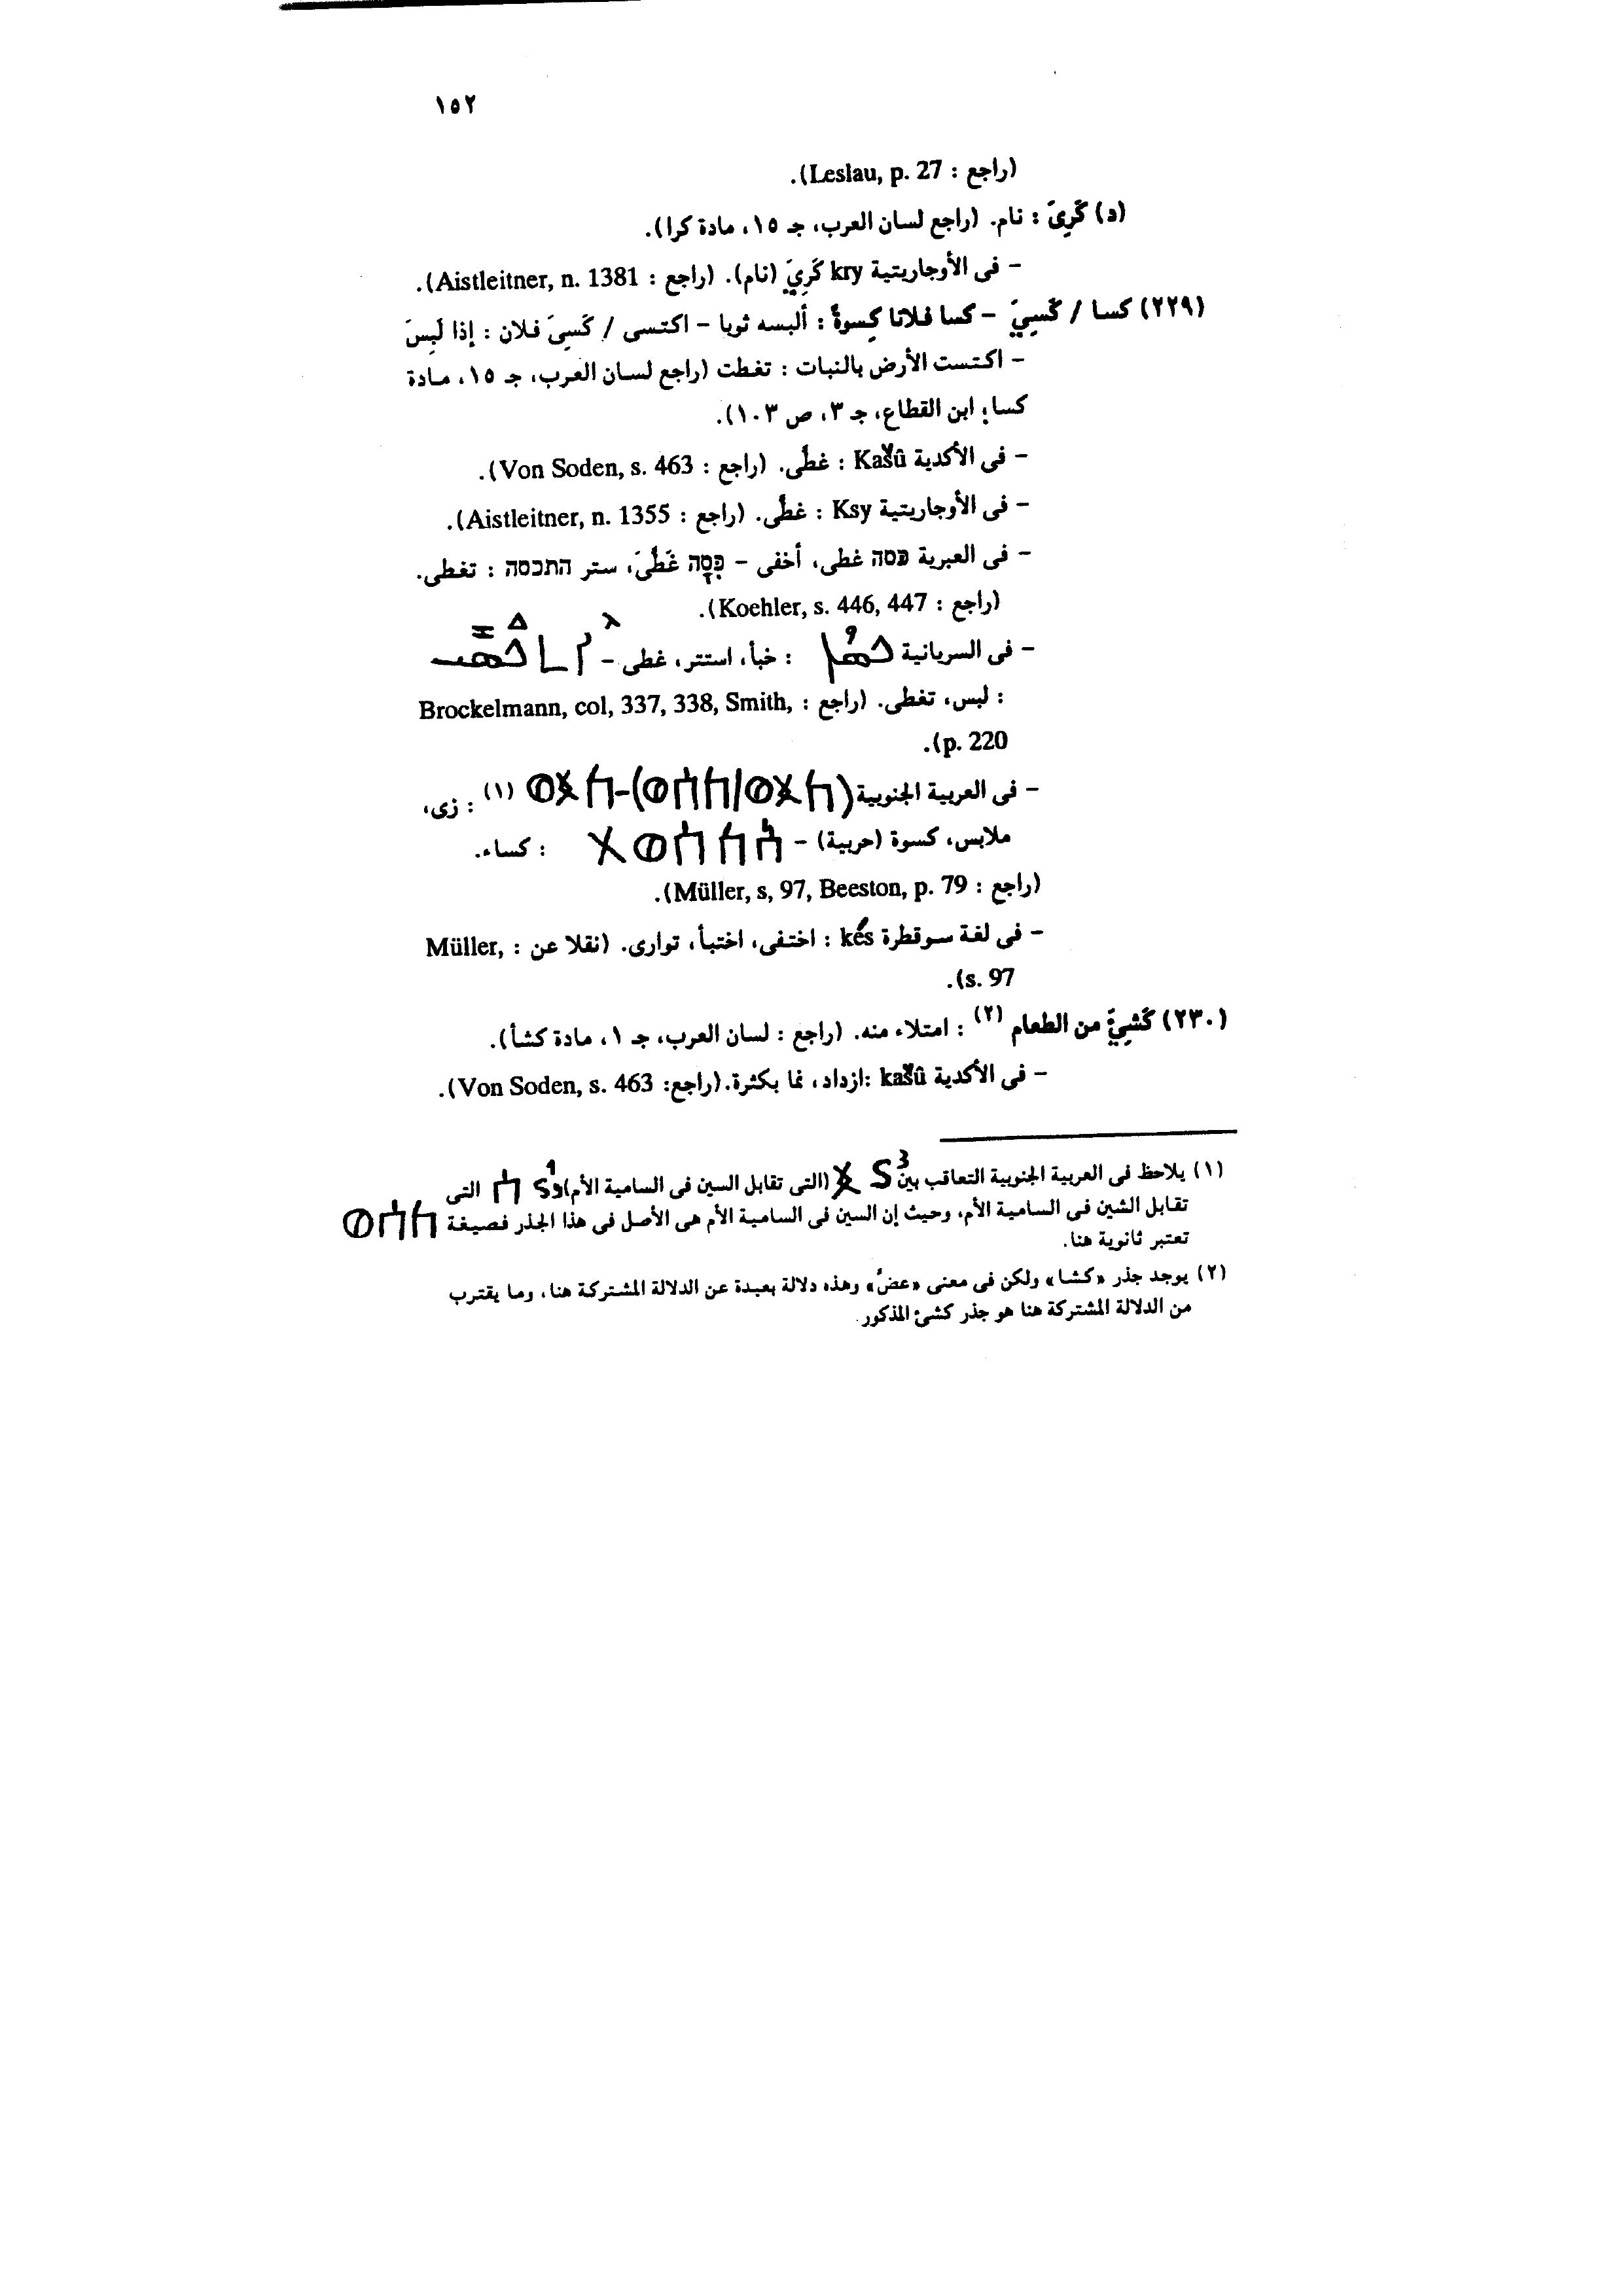 ١٥٢
(راجع : Leslau, p. 27).
(د) كَرِىَ : نام. (راجع لسان العرب، جـ ١٥، مادة كرا).
- فى الأوجاريتية kry كَرِيَ (نام). (راجع : Aistleitner, n. 1381).
(٢٢٩) كسا / كَسِيَ - كسا فلانا كِسوةً : ألبسه ثوبا - اكتسى / كَسِىَ فلان : إذا لَبِسَ
- اكتست الأرض بالنبات : تغطت (راجع لسان العرب، جـ ١٥، مادة
كسا؛ ابن القطاع، جـ ٣، ص ١٠٣).
- فى الأكدية Kašû : غطَّى. (راجع : Von Soden, s. 463).
- فى الأوجاريتية Ksy : غطَّى. (راجع : Aistleitner, n. 1355).
- فى العبرية כסה غطى، أخفى - כִּסָּה غَطَّىَ، ستر התכסה : تغطى.
(راجع : Koehler, s. 446, 447).
- فى السريانية : خبأ، استتر، غطى -
: لبس، تغطى. (راجع : Brockelmann, col, 337, 338, Smith,
p. 220).
- فى العربية الجنوبية (𐩫𐩪𐩥/𐩫𐩯𐩥)-𐩫𐩪𐩥 (١) : زى،
ملابس، كسوة (حربية) - : كساء.
(راجع : Müller, s, 97, Beeston, p. 79).
- فى لغة سوقطرة kés : اختفى، اختبأ، توارى. (نقلا عن : Müller,
s. 97).
(٢٣٠) كَشِيَّ من الطعام (٢) : امتلاء منه. (راجع : لسان العرب، جـ ١، مادة كشأ).
- فى الأكدية kašû :ازداد، نما بكثرة.(راجع: Von Soden, s. 463).
(١) يلاحظ فى العربية الجنوبية التعاقب بين S³ (التى تقابل السين فى السامية الأم) و S¹ التى
تقابل الشين فى السامية الأم، وحيث إن السين فى السامية الأم هى الأصل فى هذا الجذر فصيغة
تعتبر ثانوية هنا.
(٢) يوجد جذر «كشا» ولكن فى معنى «عضُ» وهذه دلالة بعيدة عن الدلالة المشتركة هنا، وما يقترب
من الدلالة المشتركة هنا هو جذر كشئ المذكور.